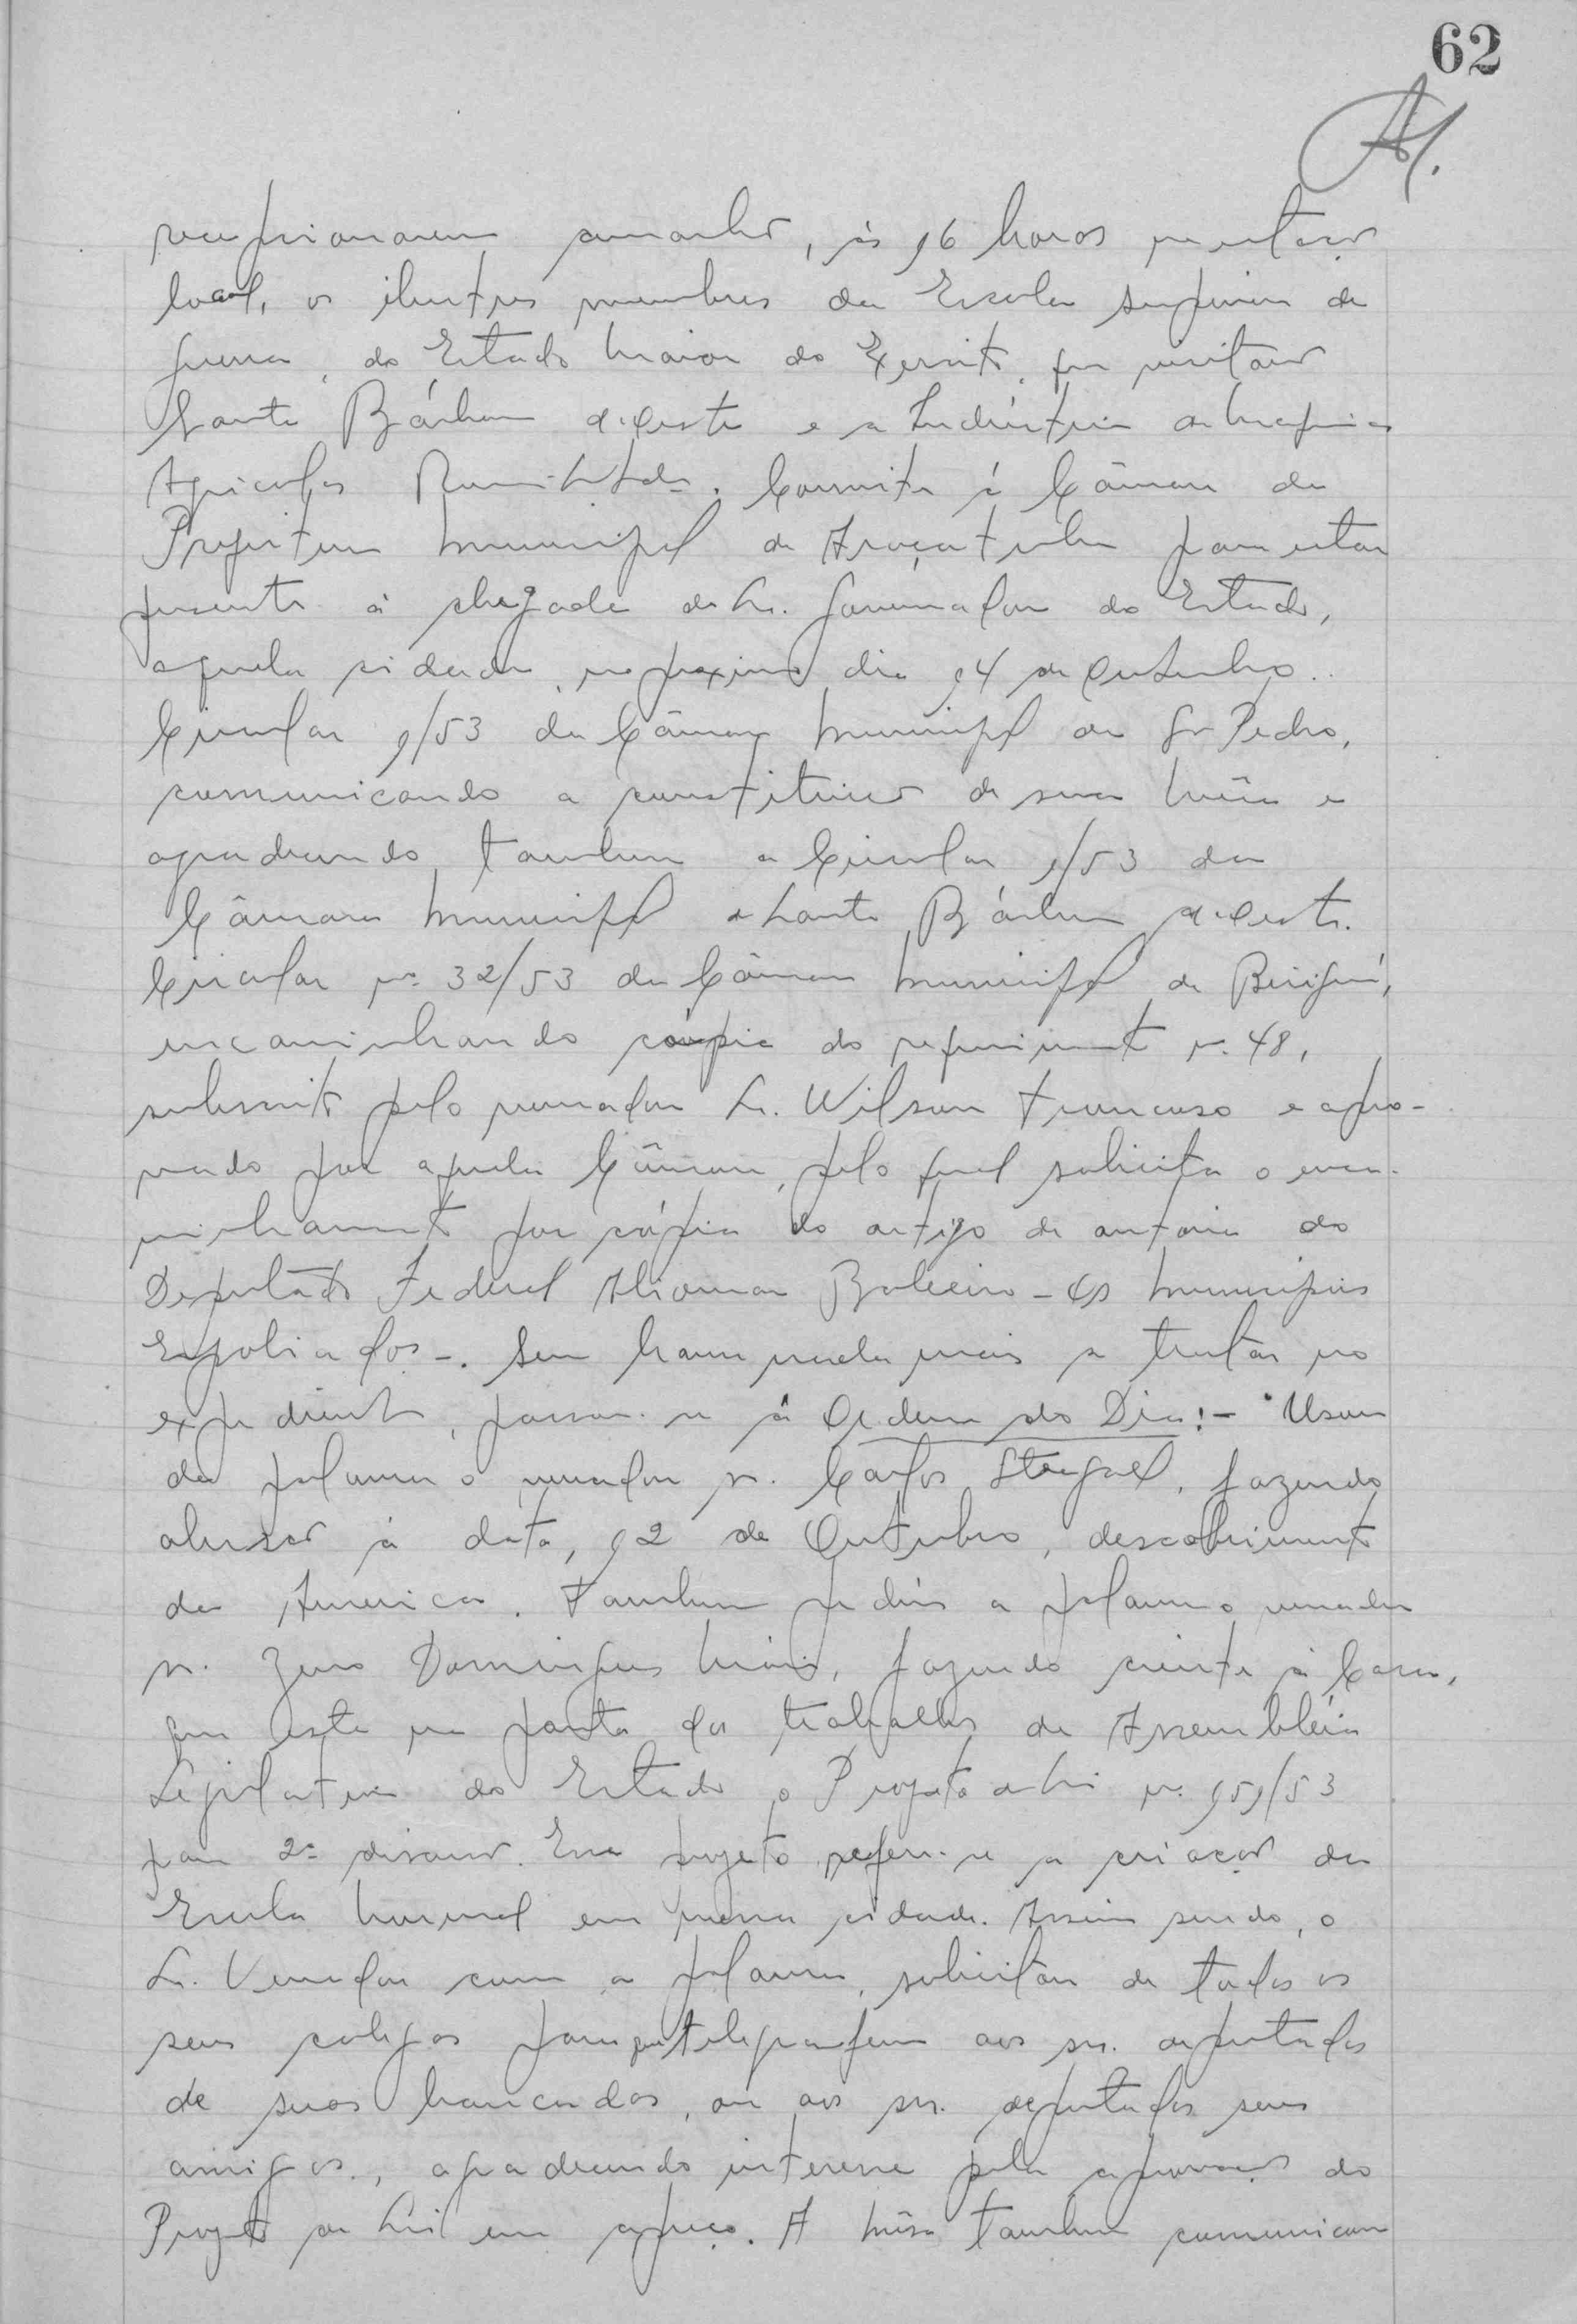 62
recepcionarem amanhã, ás 16 horas nesta
local, os ilustres membros da Escola Superior de
guerra, do Estado Maior do Exercito, que visitar
Santa Bárbara d'Oeste e a Indústria de Maquinas
Agricolas Romi Ltda. Convite á Câmara da
Prefeitura Municipal de Araçatuba para estar
presente á chegada do Sr. Governador do Estado,
aquela cidade, no proximo dia 14 de Outubro.
Circular 1/53 da Câmara Municipal de S. Pedro,
comunicando a constituição de sua Mêsa e
agradecendo tambem a Circular 1/53 da
Câmara Municipal de Santa Bárbara d'Oeste.
Circular nº 32/53 da Câmara Municipal de Biriguí,
encaminhando cópia do requerimento nº 48,
subscrito pelo vereador Sr. Wilson e apro-
vado por aquela Câmara, pelo qual solicita o enca-
minhamento por cópia do artigo de autoria do
Deputado Federal Aliomar Baleeiro - Os Municipios
Espoliados -. Sem haver nada mais a tratar no
expediente, passou-se á Ordem do Dia:- Usou
da palavra o vereador sr. Carlos Steagall, fazendo
alusão á data, 12 de Outubro, descobrimento
da America. Tambem pediu a palavra o vereador
sr. Zeno Domingues Maia, fazendo ciente á Casa,
que está na pauta dos trabalhos da Assembléia
Legislativa do Estado o Projeto de Lei nº 151/53
para 2ª discussão. Esse projeto refere-se a criação da
Escola Normal em nossa cidade. Assim sendo, o
Sr. Vereador com a palavra, solicitou de todos os
seus colegas para que telegrafem aos srs. deputados
de suas bancadas, ou aos srs. deputados seus
amigos, agradecendo interesse pela aprovação do
Projeto de Lei em apreço. A Mêsa tambem comunicou